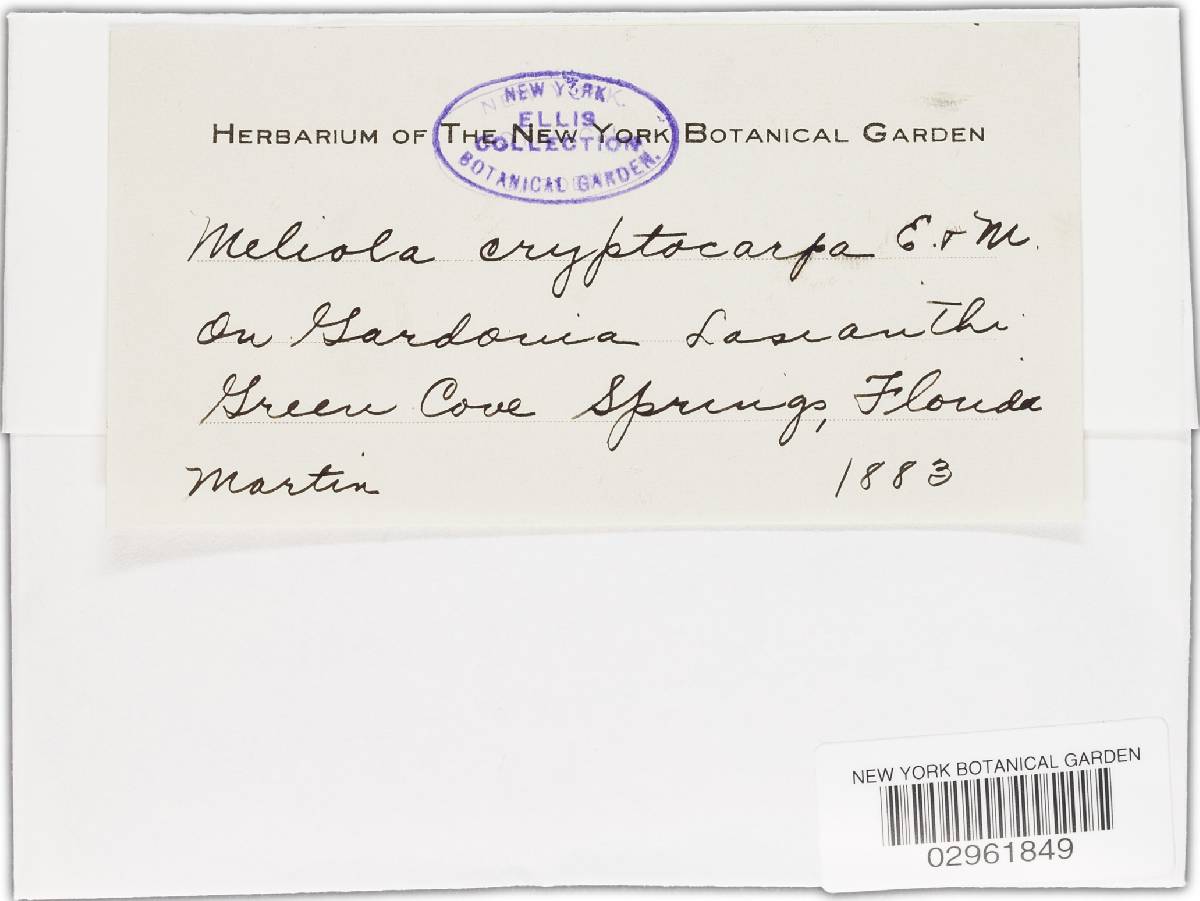 HERBARIUM OF THE NEW YORK BOTANICAL GARDEN
NEW YORK
ELLIS
COLLECTION
BOTANICAL GARDEN.
Meliola cryptocarpa E. & M.
On Gardonia Lasianthi
Green Cove Springs, Florida
Martin 1883
NEW YORK BOTANICAL GARDEN
02961849